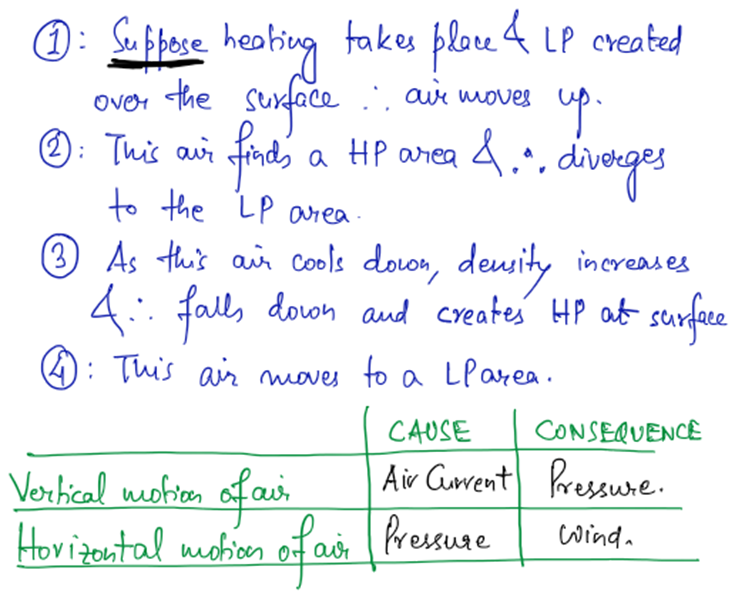 ①: Suppose heating takes place & LP created
over the surface ∴ air moves up.
②: This air finds a HP area & ∴ diverges
to the LP area.
③ As this air cools down, density increases
& ∴ falls down and creates HP at surface
④: This air moves to a LP area.
CAUSE CONSEQUENCE
Vertical motion of air Air Current Pressure.
Horizontal motion of air Pressure Wind.